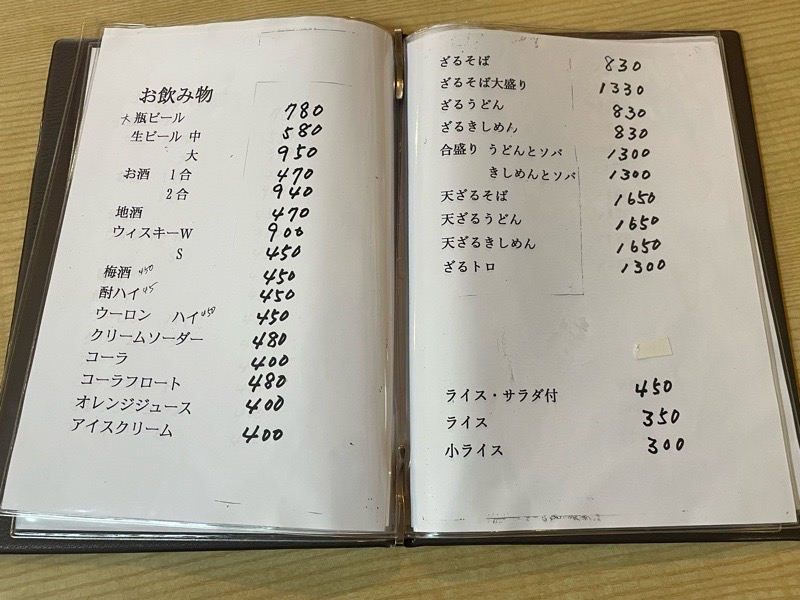 お飲み物
大瓶ビール 780
生ビール 中 580
大 950
お酒 1合 470
2合 940
地酒 470
ウィスキーW 900
S 450
梅酒 450 450
酎ハイ 45 450
ウーロン ハイ 450 450
クリームソーダー 480
コーラ 400
コーラフロート 480
オレンジジュース 400
アイスクリーム 400
ざるそば 830
ざるそば大盛り 1330
ざるうどん 830
ざるきしめん 830
合盛り うどんとソバ 1300
きしめんとソバ 1300
天ざるそば 1650
天ざるうどん 1650
天ざるきしめん 1650
ざるトロ 1300
ライス・サラダ付 450
ライス 350
小ライス 300